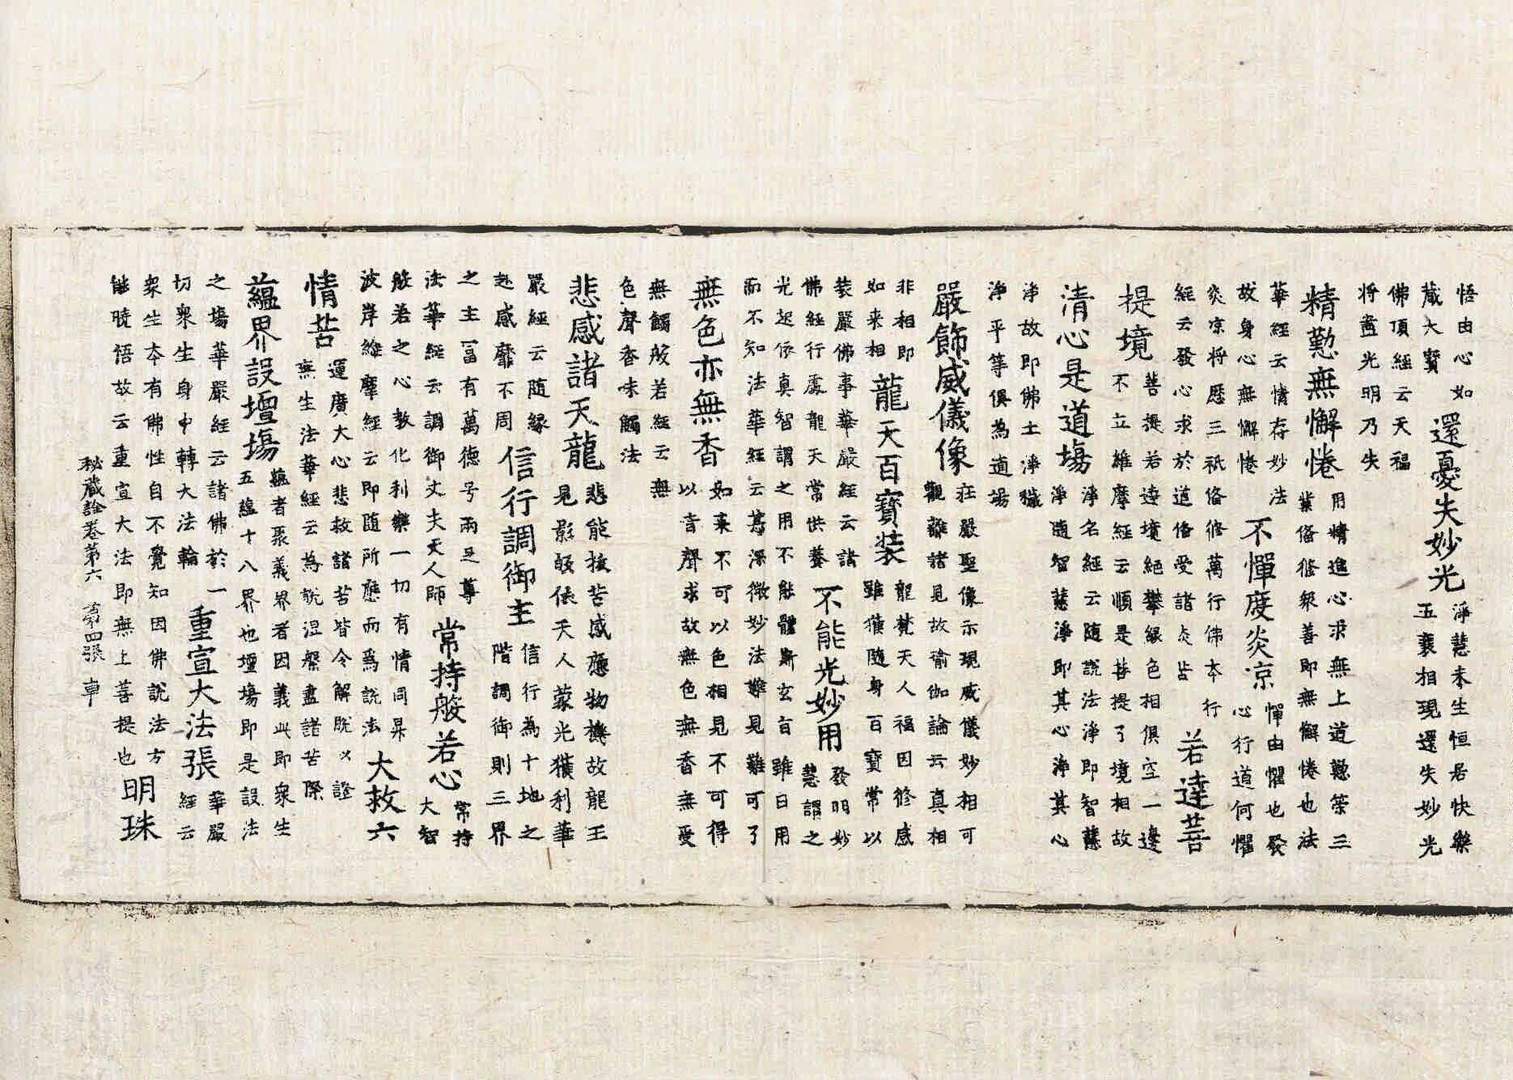 悟由心如
藏大寶
還憂失妙光
淨慧未生恒居快樂
五衰相現還失妙光
佛頂經云天福
将盡光明乃失
精懃無懈惓
用情進心求無上道懃策三
業俻修衆善即無懈惓也法
華經云情存妙法
故身心無懈惓
不憚度炎凉
憚由懼也發
心行道何懼
炎凉将歷三祇俻修萬行佛本行
經云發心求於道俻受諸苦
若達菩
提境
菩提若達境絕攀緣色相俱空一邊
不立維摩經云順是菩提了境相故
清心是道場
淨名經云隨說法淨即智慧
淨隨智慧淨即其心淨其心
淨故即佛土淨穢
淨平等俱為道場
嚴飾威儀像
莊嚴聖像示現威儀妙相可
觀離諸見故瑜伽論云真相
非相即
如来相
龍天百寶装
龍梵天人福因修感
雖獲隨身百寶常以
装嚴佛事華嚴經云諸
佛經行處龍天常供養
不能光妙用
發明妙
慧謂之
光起依真智謂之用不能體斯玄旨雖日用
而不知法華經云甚深微妙法難見難可了
無色亦無香
如来不可以色相見不可得
以音聲求故無色無香無受
無觸般若經云無
色聲香味觸法
悲感諸天龍
悲能拔苦感應物機故龍王
見影天人蒙光獲利華
嚴經云随緣
赴感靡不周
信行調御主
信行為十地之
階調御則三界
之主冨有萬德号兩足尊
法華經云調御丈夫天人師
常持般若心
常持
大智
般若之心教化利樂一切有情同昇
波岸維摩經云即随所應而爲說法
大救六
情苦
運廣大心悲救諸苦皆令解脫以證
無生法華經云為說涅槃盡諸苦際
蘊界設壇場
蘊者聚義界者因義此即衆生
五蘊十八界也壇場即是設法
之場華嚴經云諸佛於一
切衆生身中轉大法輪
重宣大法張
華嚴
經云
衆生本有佛性自不覺知因佛說法方
能曉悟故云重宣大法即無上菩提也
明珠
秘藏詮卷第六 第四張 車